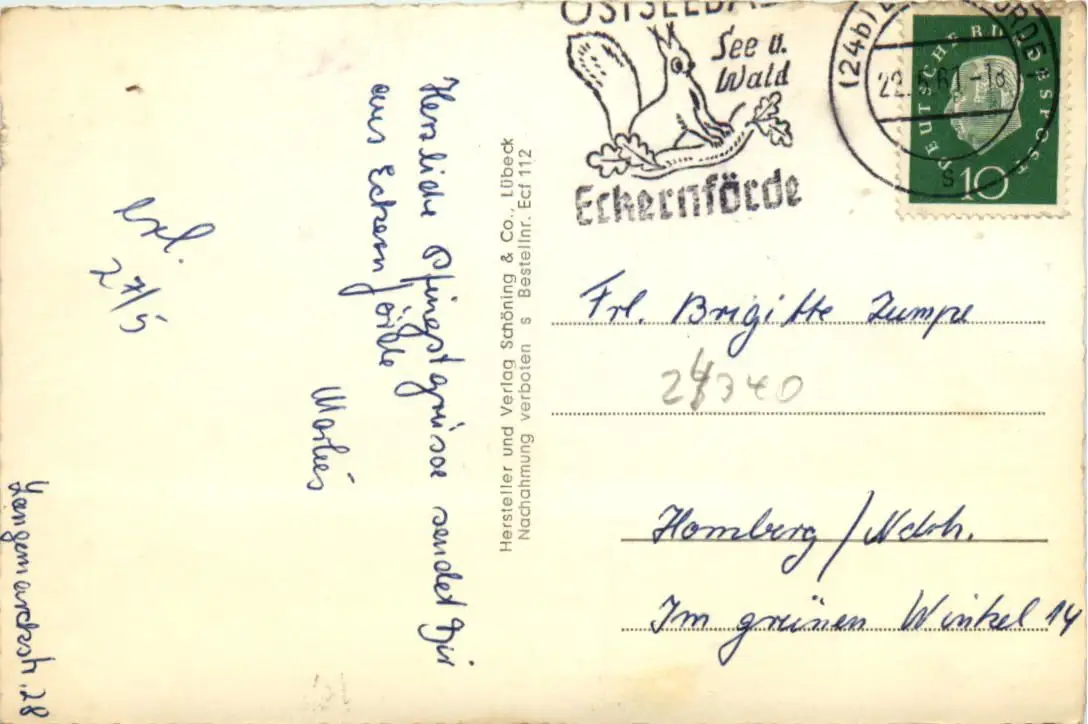 OSTSEEBAD
See u.
Wald
Eckernförde
(24b)
22.5.61-18
s
DEUTSCHE BUNDESPOST
10
Herzliche Pfingstgrüsse sendet Dir
aus Eckernförde
Marlies
erl.
27/5
Langemarckstr. 28
Hersteller und Verlag Schöning & Co., Lübeck
Nachahmung verboten s Bestellnr. Ecf 112
Frl. Brigitte Zumpe
24340
Homberg/Ndrh.
Im grünen Winkel 14